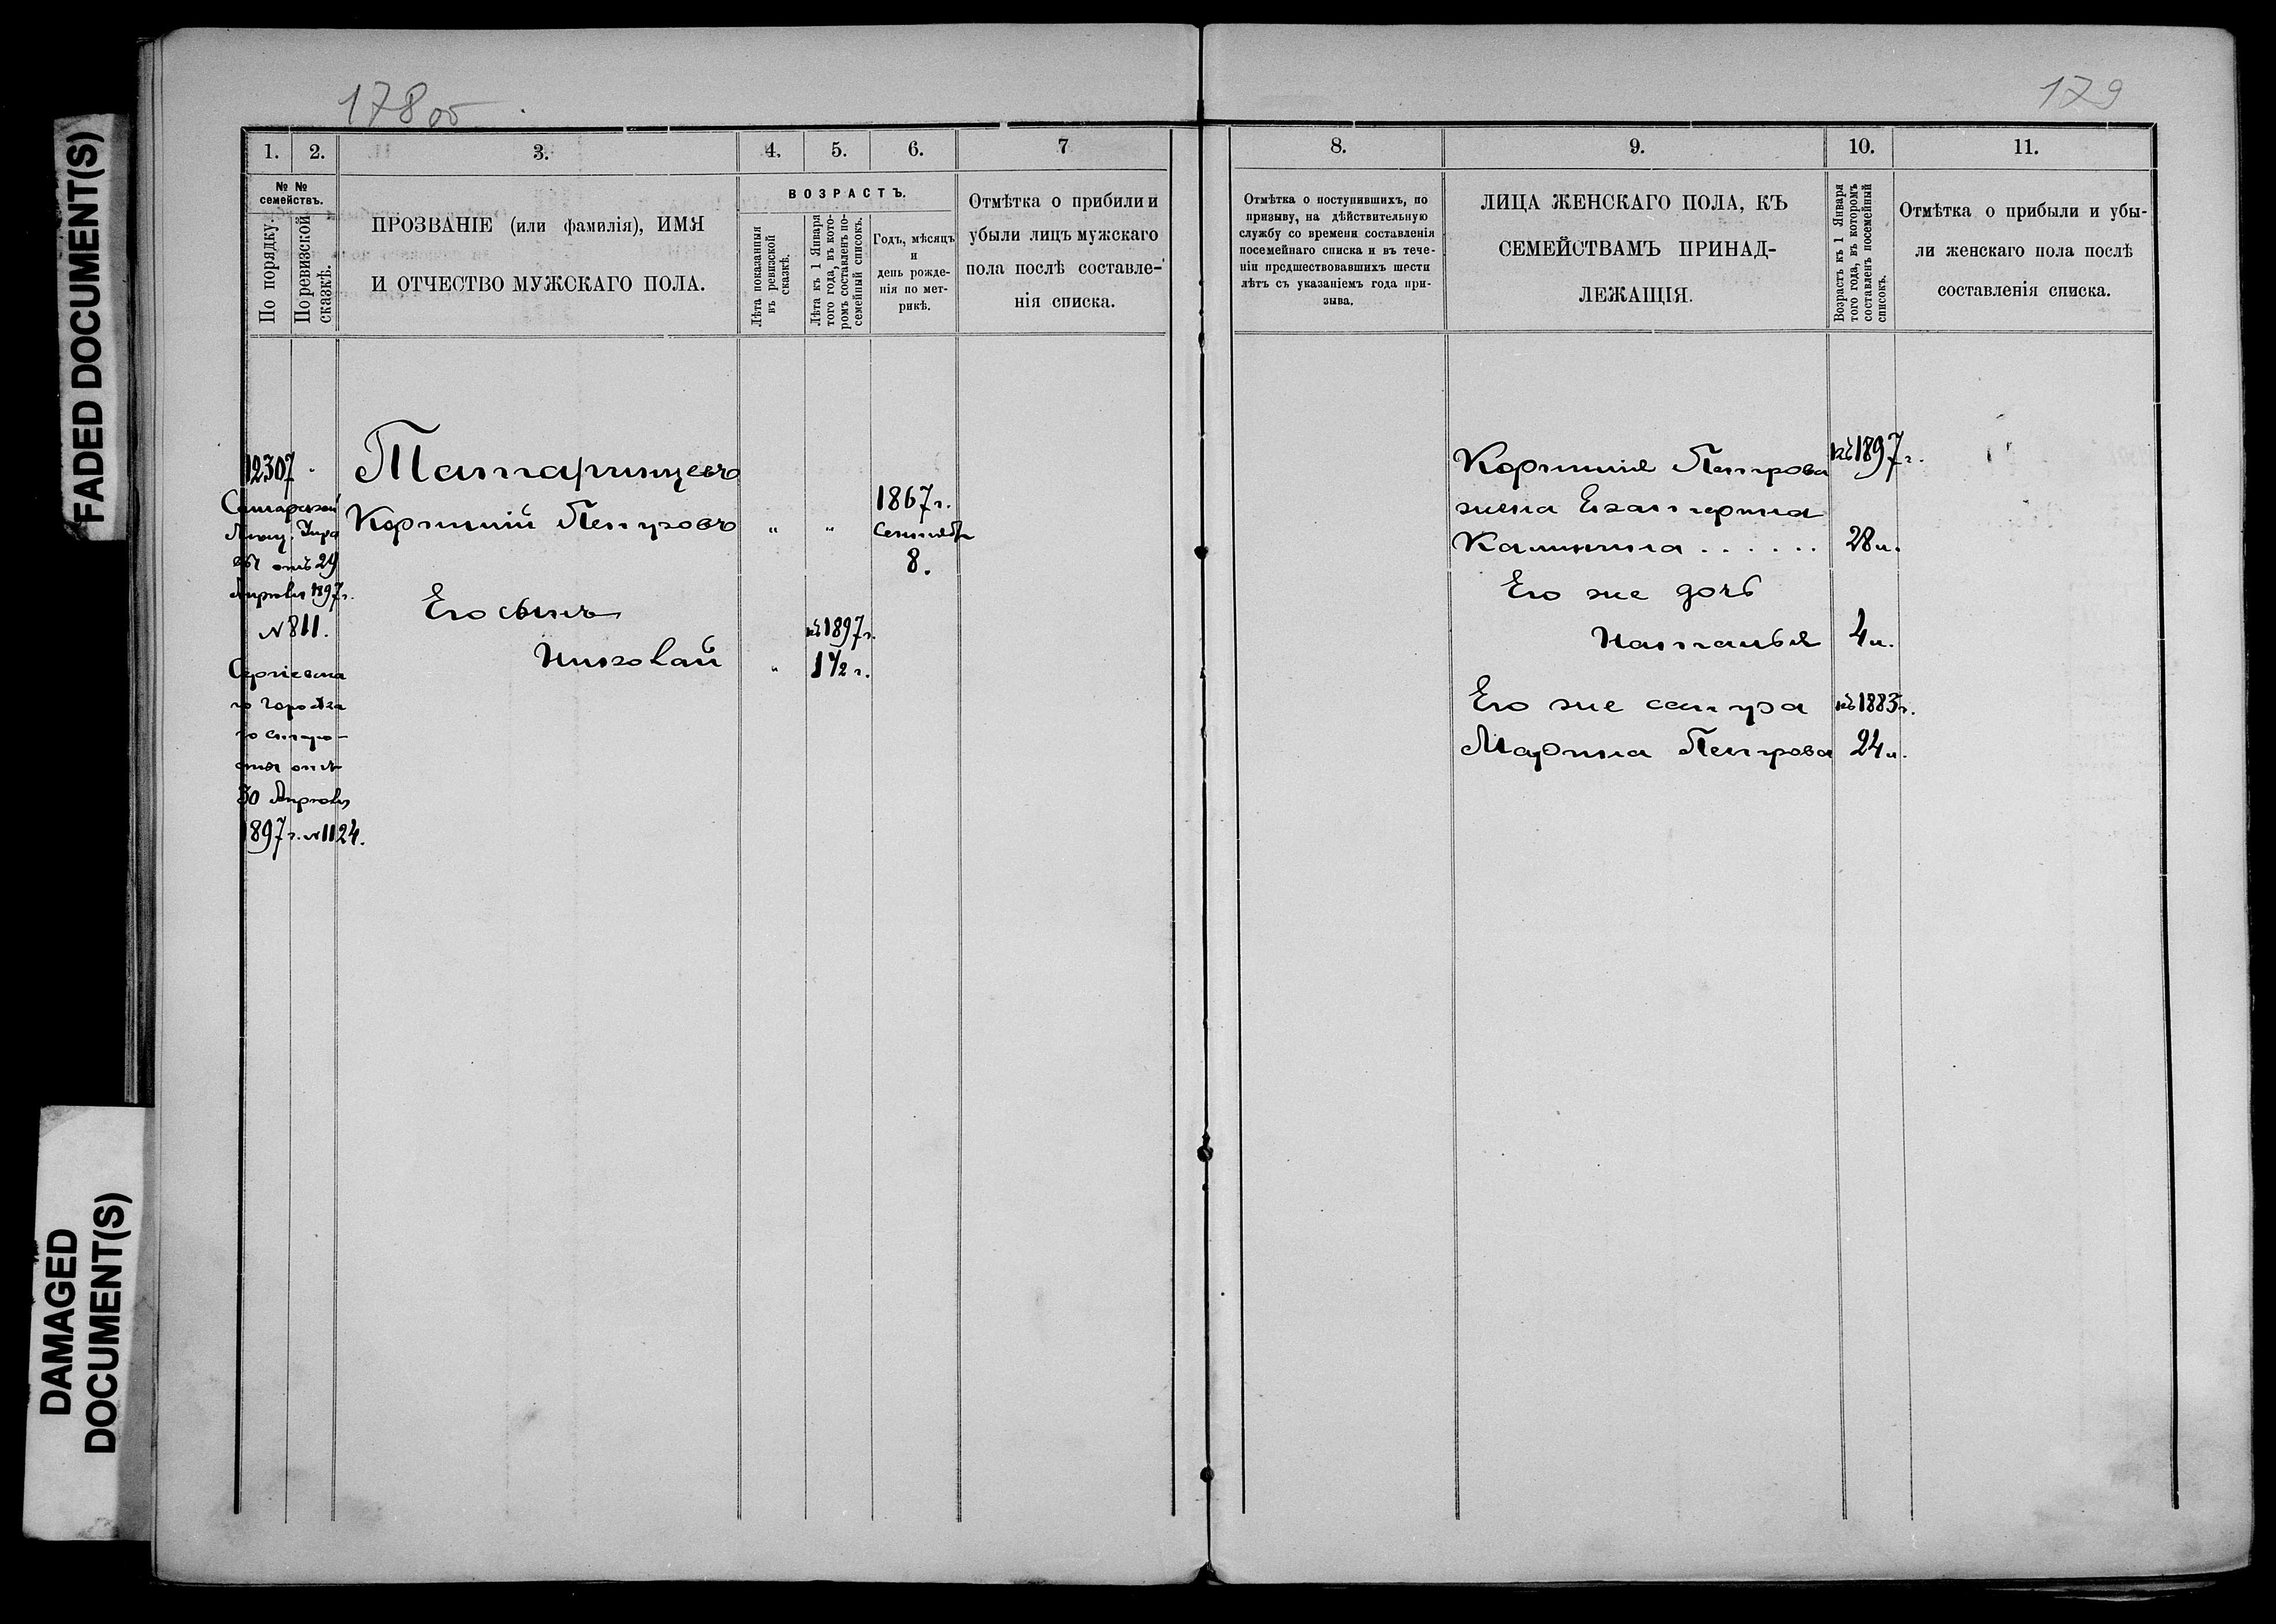 FADED DOCUMENT(S)
DAMAGED
DOCUMENT(S)
178 об
1. 2. 3. 4. 5. 6. 7
№ №
семействъ.
По порядку.
По ревизской
сказкѣ.
ПРОЗВАНІЕ (или фамилія), ИМЯ
И ОТЧЕСТВО МУЖСКАГО ПОЛА.
ВОЗРАСТЪ.
Лѣта показанныя
въ ревизской
сказкѣ.
Лѣта къ 1 Января
того года, въ кото-
ромъ составленъ по-
семейный списокъ.
Годъ, мѣсяцъ
и
день рожде-
нія по мет-
рикѣ.
Отмѣтка о прибыли и
убыли лицъ мужскаго
пола послѣ составле-
нія списка.
12307
Самарской
Мѣщ. Упра
вы отъ 29
Апрѣля 1897 г.
№ 811.
Сергіевска
го Городска
го старо-
сты отъ
30 Апрѣля
1897 г. № 1124.
Татаринцевъ
Корнилій Петровъ " " 1867 г.
Сентября
8.
Его сынъ
къ 1897 г.
Николай " 1 1/2 г.
179
8. 9. 10. 11.
Отмѣтка о поступившихъ, по
призыву, на дѣйствительную
службу со времени составленія
посемейнаго списка и въ тече-
ніи предшествовавшихъ шести
лѣтъ съ указаніемъ года при-
зыва.
ЛИЦА ЖЕНСКАГО ПОЛА, КЪ
СЕМЕЙСТВАМЪ ПРИНАД-
ЛЕЖАЩІЯ.
Возрастъ къ 1 Января
того года, въ которомъ
составленъ посемейный
списокъ.
Отмѣтка о прибыли и убы-
ли женскаго пола послѣ
составленія списка.
Корнилія Петрова къ 1897 г.
жена Екатерина
Калинина . . . . . . 28 л.
Его же дочь
Наталья 4 л.
Его же сестра къ 1883 г.
Марина Петрова 24 л.